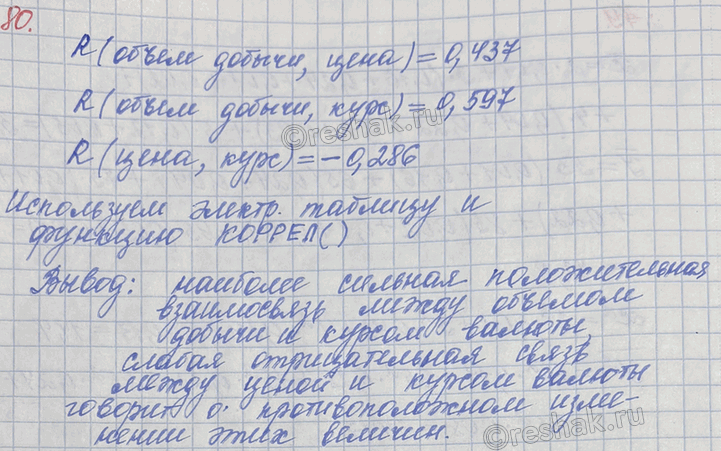 80.
R(объем добычи, цена) = 0,437
R(объем добычи, курс) = 0,597
R(цена, курс) = -0,286
Используем электр. таблицу и
функцию КОРРЕЛ()
Вывод: наиболее сильная положительная
взаимосвязь между объемом
добычи и курсом валюты,
слабая отрицательная связь
между ценой и курсом валюты
говорит о противоположном изме-
нении этих величин.
©reshak.ru
©reshak.ru